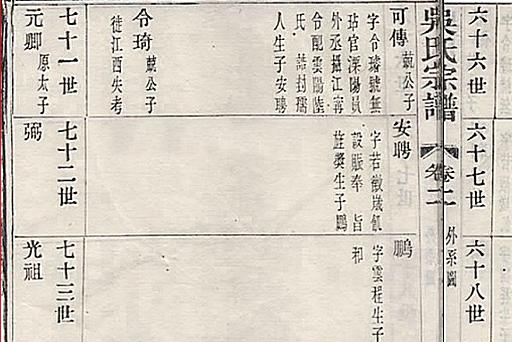 六十六世
六十七世
六十八世
吳氏宗譜
卷二
外系圖
可傳 兢公子
字令璿號無
玷官溧陽縣
外丞攝江寧
令配雲陽陸
氏 誥封孺
人生子安聘
令琦 兢公子
徙江西失考
安聘
字若徵歲飢
設賑奉 旨
旌獎生子鵬
鵬
字雲程生子
和
七十一世
元卿 原太子
七十二世
弼
七十三世
光祖